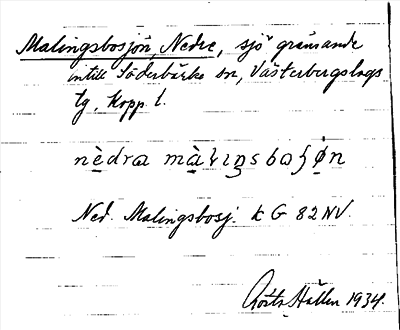 Malingsbosjön, Nedre, sjö gränsande
intill Söderbärke sn, Västerbergslags
tg, Kopp. l.
nèdra màlıŋsboʃø̀n
Ned. Malingsbosj. k G 82 NV.
Gösta Hallen 1934.